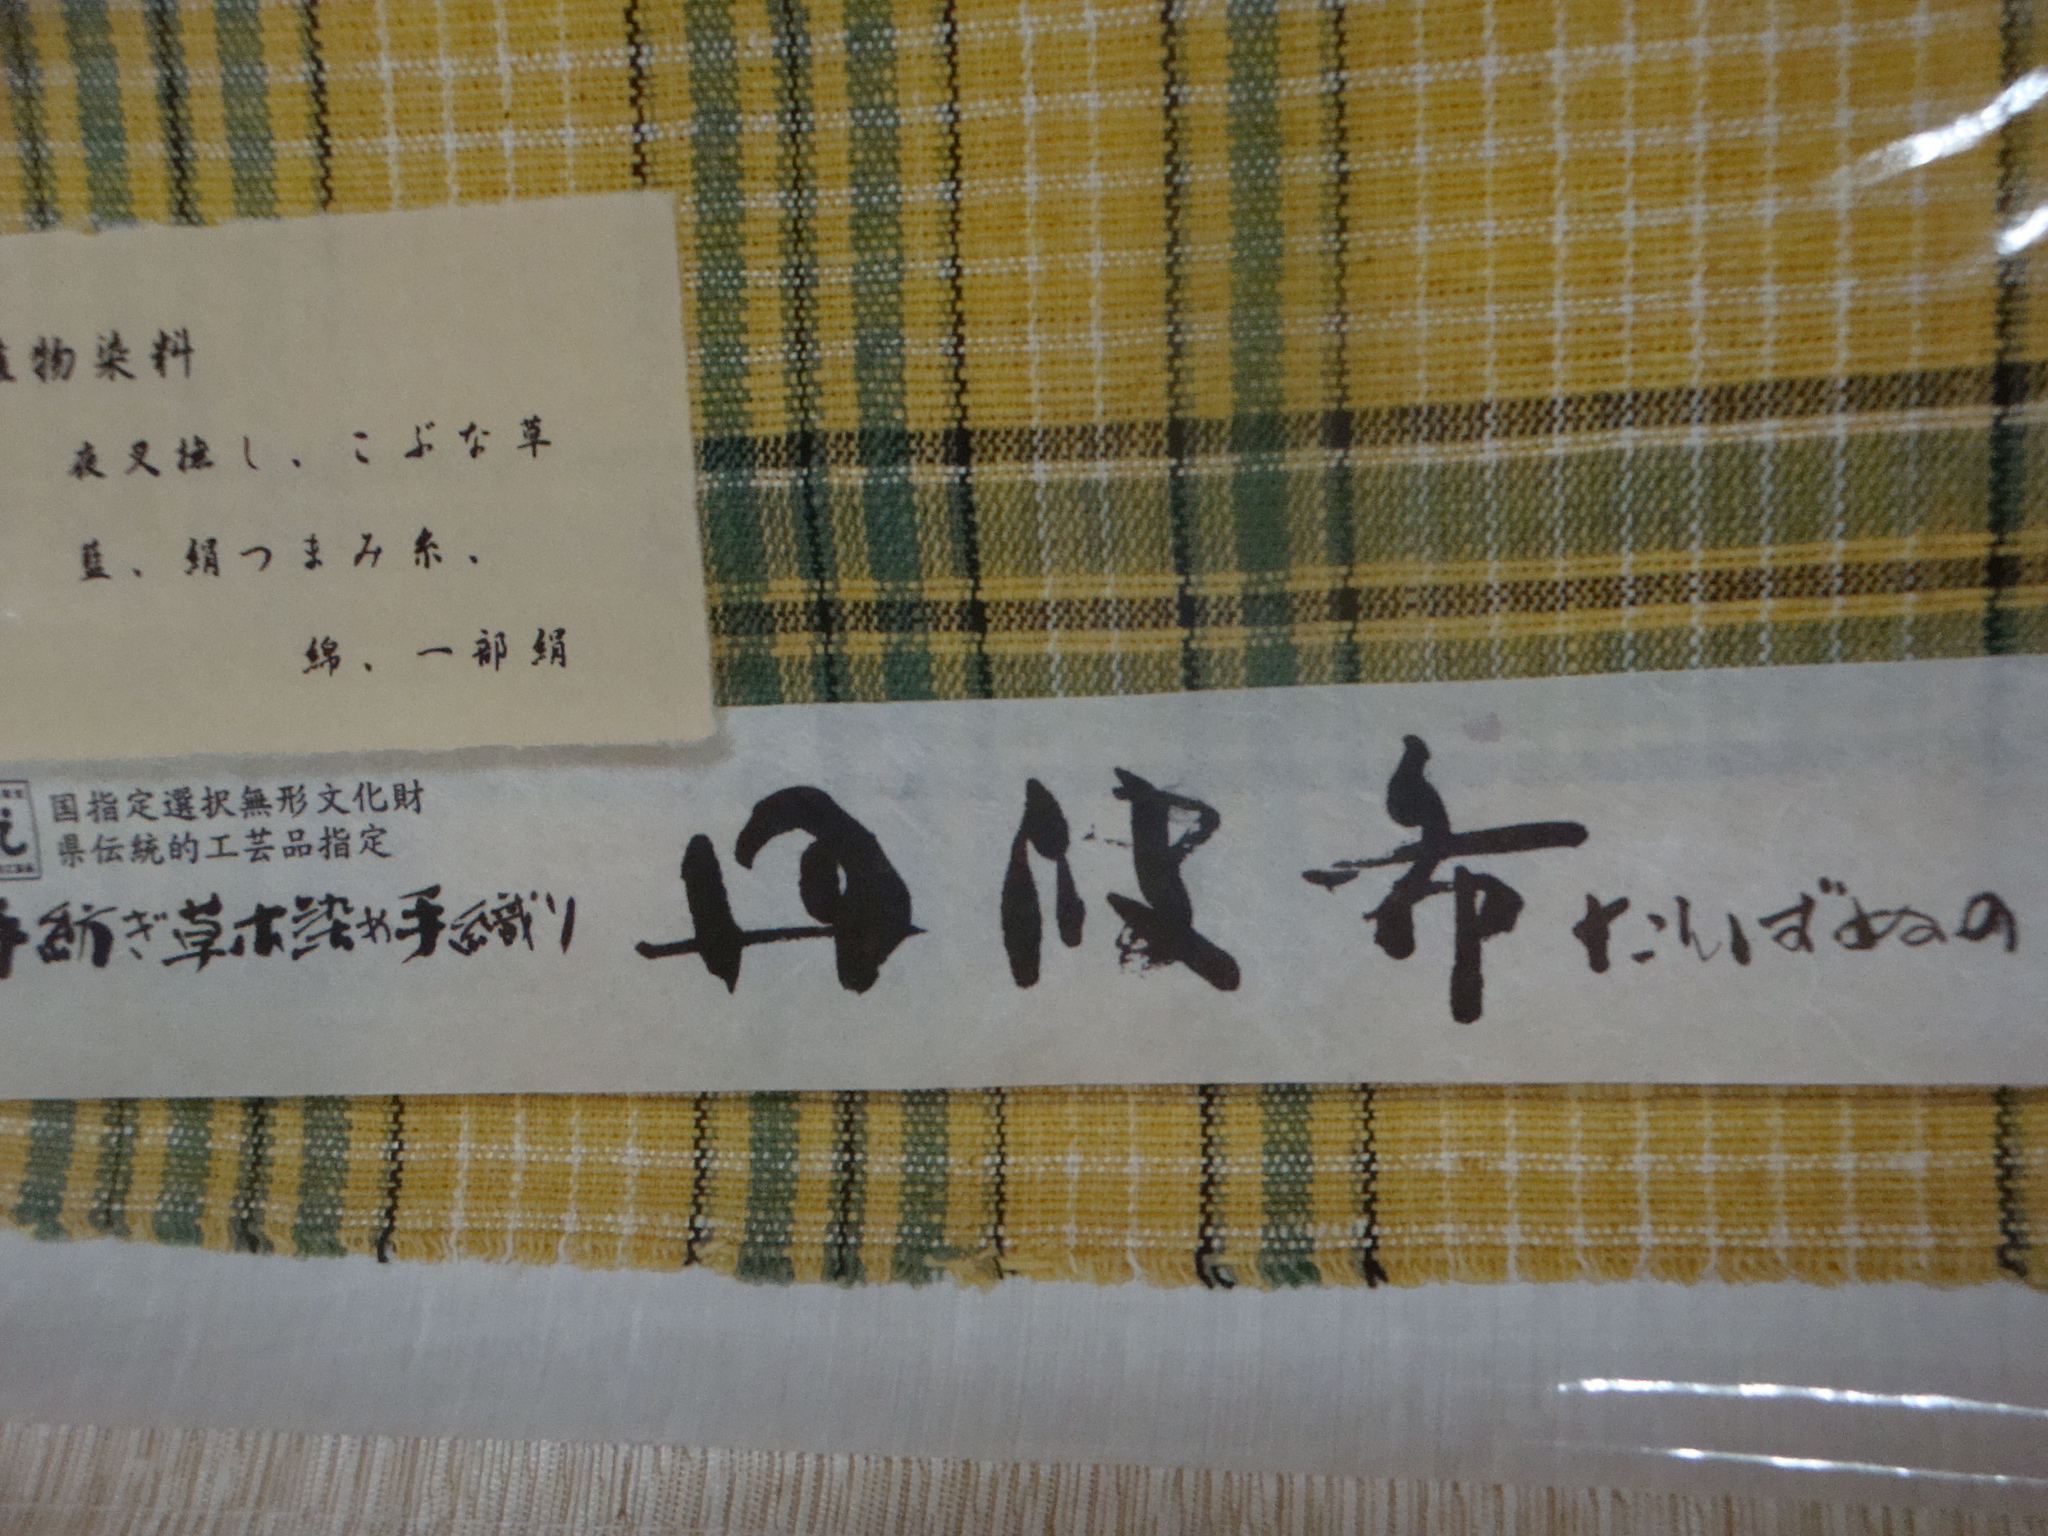 物染料
夜叉撫し、こぶな草
藍、絹つまみ糸、
綿、一部絹
国指定選択無形文化財
県伝統的工芸品指定
手紡ぎ草木染め手織り
丹波布たんばぬの